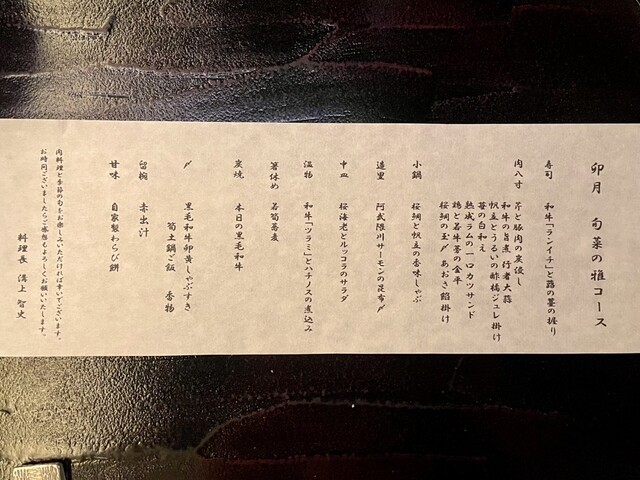 卯月　旬菜の雅コース
寿司　和牛「ランイチ」と蕗の薹の握り
肉八寸　芹と豚肉の炭浸し
和牛の旨煮 行者大蒜
帆立とうるいの酢橘ジュレ掛け
苺の白和え
熟成ラムの一口カツサンド
鶏と若牛蒡の金平
桜鯛の玉〆 あおさ餡掛け
小鍋　桜鯛と帆立の香味しゃぶ
造里　阿武隈川サーモンの昆布〆
中皿　桜海老とルッコラのサラダ
温物　和牛「ツラミ」とハチノスの煮込み
箸休め　若筍蕎麦
炭焼　本日の黒毛和牛
〆　黒毛和牛卵黄しゃぶすき
筍土鍋ご飯　香物
留椀　赤出汁
甘味　自家製わらび餅
肉料理と季節の旬をお楽しみいただければ幸いでございます。
お時間ございましたらご感想もよろしくお願いいたします。
料理長　溝上 智史